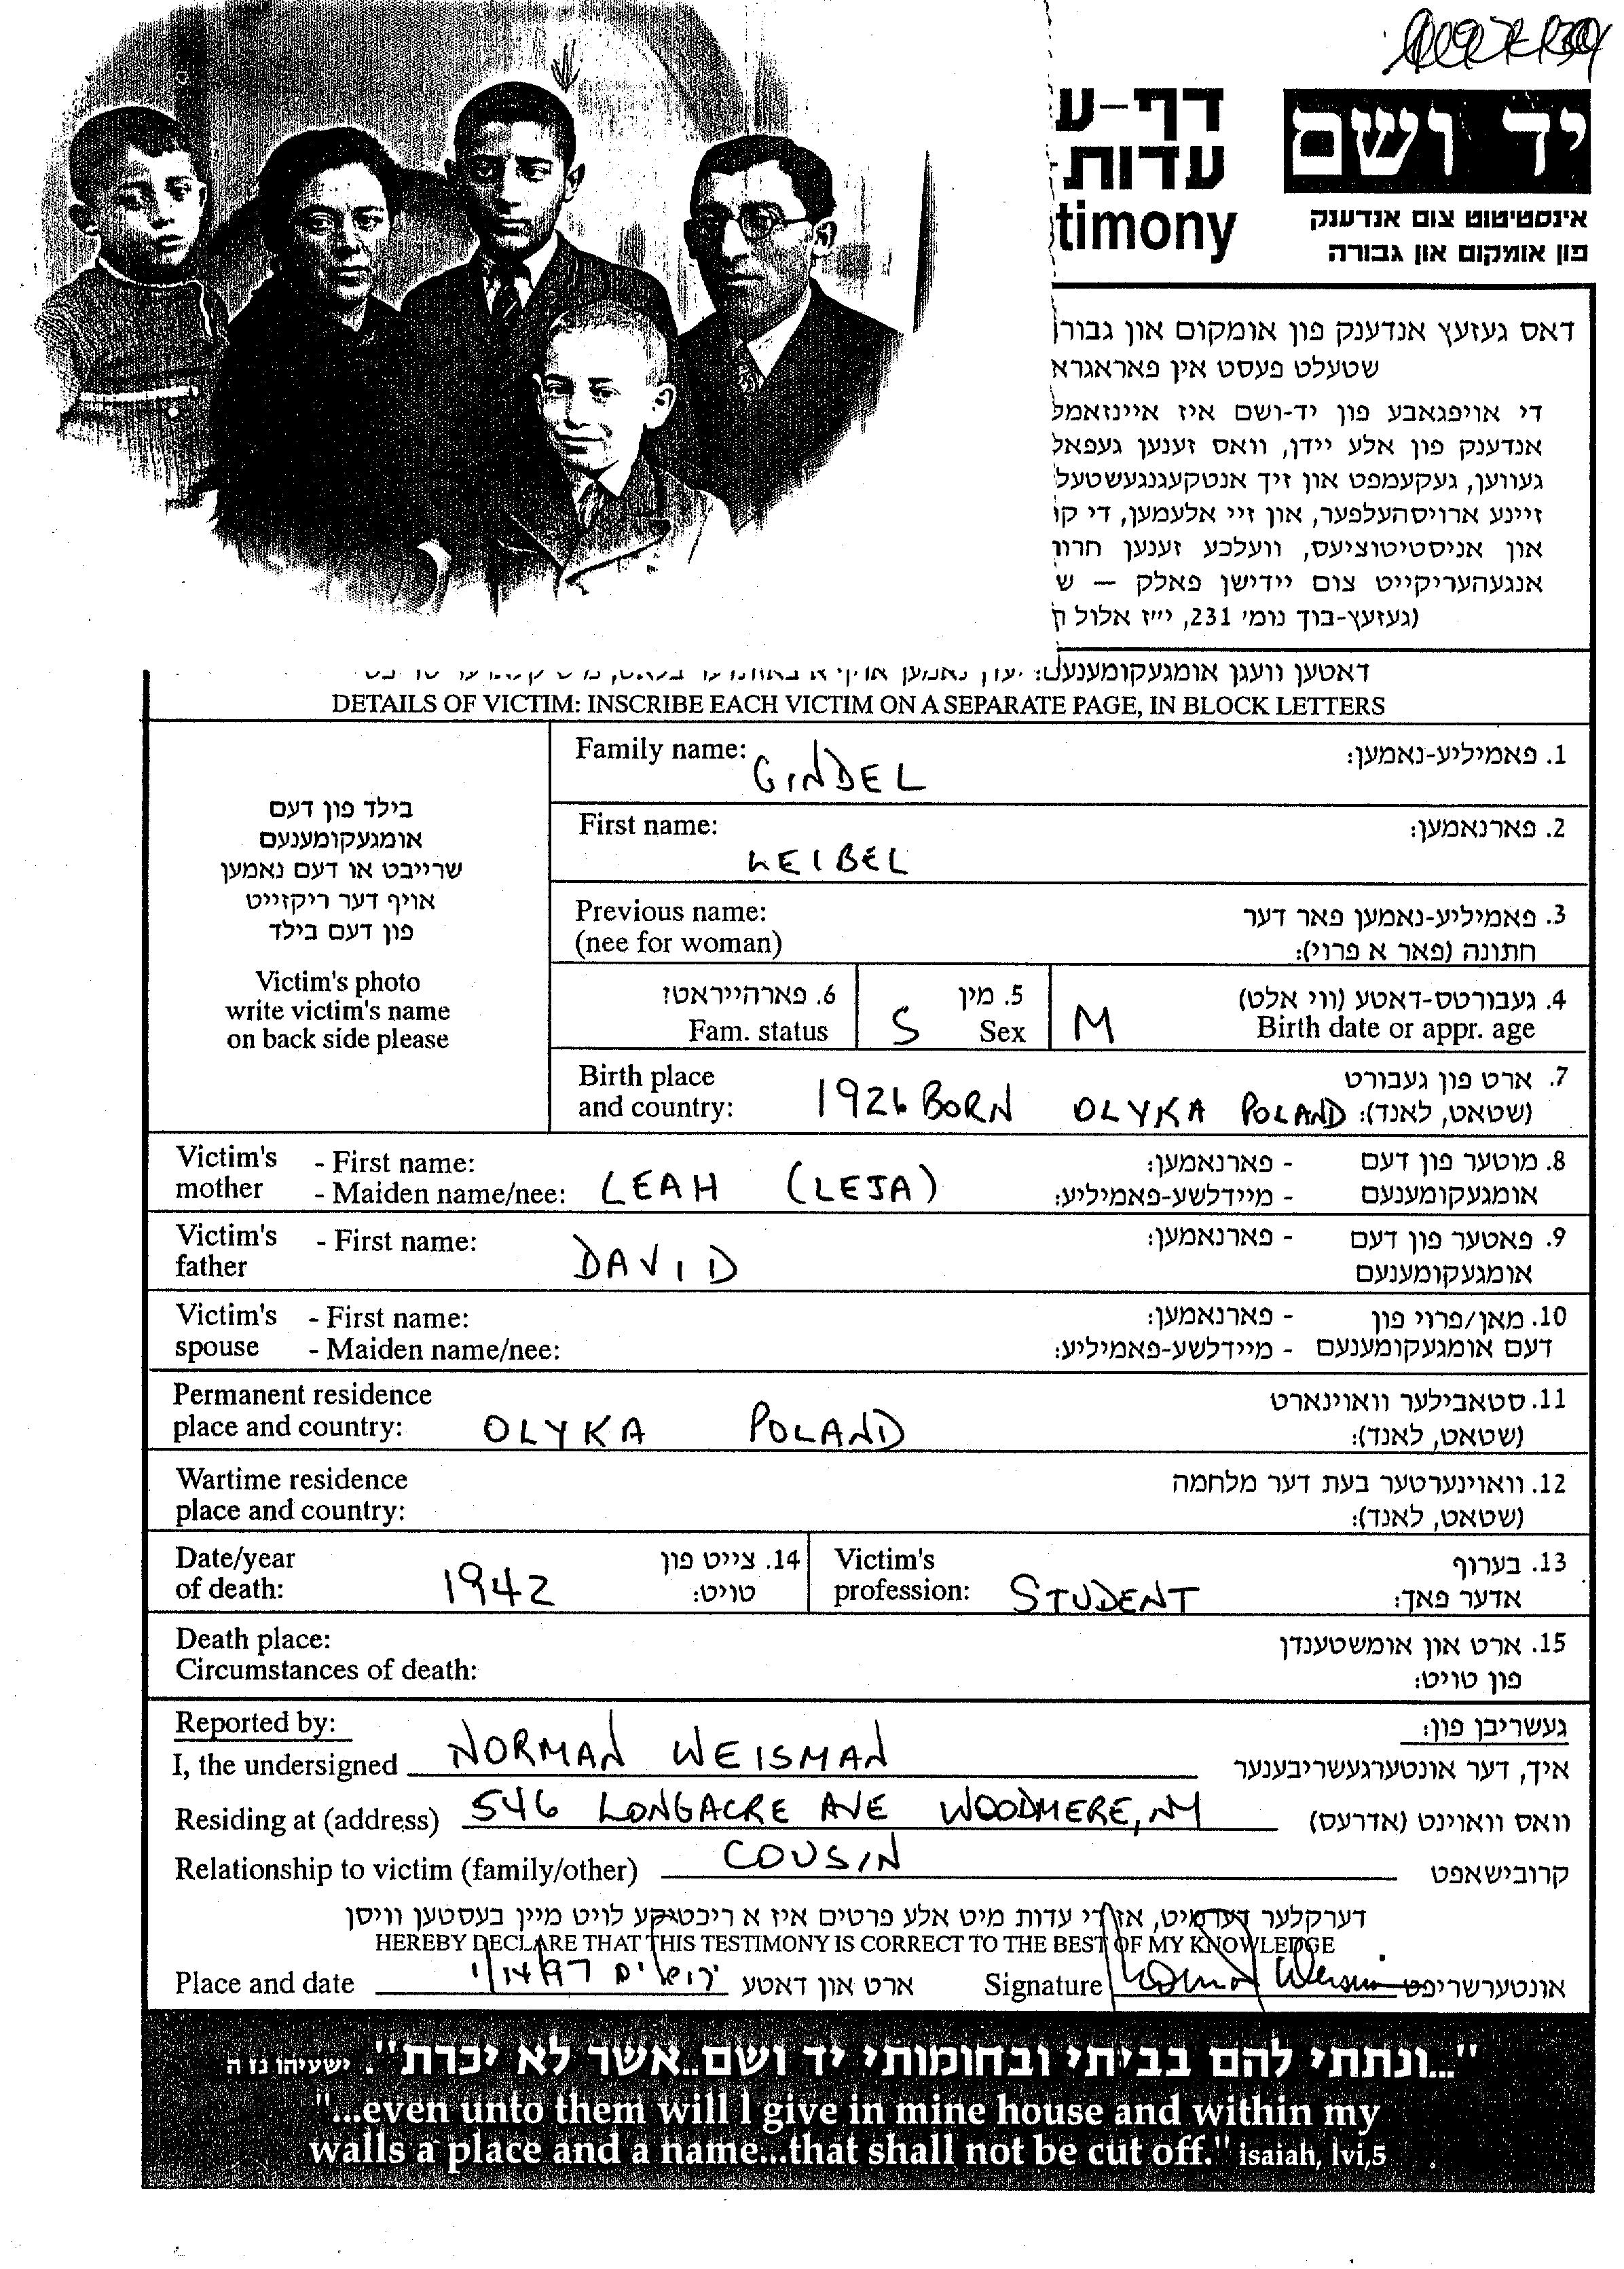 דף-ע
עדות-
timony
יד ושם
אינסטיטוט צום אנדענק
פון אומקום און גבורה
דאס געזעץ אנדענק פון אומקום און גבורה
שטעלט פעסט אין פאראגרא
די אויפגאבע פון יד-ושם איז איינזאמל
אנדענק פון אלע יידן, וואס זענען געפאל
געווען, געקעמפט און זיך אנטקעגנגעשטעל
זיינע ארויסהעלפער, און זיי אלעמען, די קו
און אניסטיטוציעס, וועלכע זענען חרוו
אנגעהעריקייט צום יידישן פאלק — ש
(געזעץ-בוך נומ' 231, י"ז אלול ת
דאטען וועגן אומגעקומענעם:
DETAILS OF VICTIM: INSCRIBE EACH VICTIM ON A SEPARATE PAGE, IN BLOCK LETTERS
בילד פון דעם
אומגעקומענעם
שרייבט או דעם נאמען
אויף דער ריקזייט
פון דעם בילד
Victim's photo
write victim's name
on back side please
Family name: GINDEL 1. פאמיליע-נאמען:
First name: LEIBEL 2. פארנאמען:
Previous name: 3. פאמיליע-נאמען פאר דער
(nee for woman) חתונה (פאר א פרוי):
6. פארהייראטז 5. מין 4. געבורטס-דאטע (ווי אלט)
Fam. status S Sex M Birth date or appr. age
Birth place 7. ארט פון געבורט
and country: 1926 BORN OLYKA POLAND (שטאט, לאנד):
Victim's - First name: - פארנאמען: 8. מוטער פון דעם
mother - Maiden name/nee: LEAH (LEJA) - מיידלשע-פאמיליע: אומגעקומענעם
Victim's - First name: - פארנאמען: 9. פאטער פון דעם
father DAVID אומגעקומענעם
Victim's - First name: - פארנאמען: 10. מאן/פרוי פון
spouse - Maiden name/nee: - מיידלשע-פאמיליע: דעם אומגעקומענעם
Permanent residence 11. סטאבילער וואוינארט
place and country: OLYKA POLAND (שטאט, לאנד):
Wartime residence 12. וואוינערטער בעת דער מלחמה
place and country: (שטאט, לאנד):
Date/year 14. צייט פון Victim's 13. בערוף
of death: 1942 טויט: profession: STUDENT אדער פאך:
Death place: 15. ארט און אומשטענדן
Circumstances of death: פון טויט:
Reported by: געשריבן פון:
I, the undersigned NORMAN WEISMAN איך, דער אונטערגעשריבענער
Residing at (address) 546 LONGACRE AVE WOODMERE, NY וואס וואוינט (אדרעס)
Relationship to victim (family/other) COUSIN קרובישאפט
דערקלער דערמיט, אז די עדות מיט אלע פרטים איז א ריכטיקע לויט מיין בעסטען וויסן
HEREBY DECLARE THAT THIS TESTIMONY IS CORRECT TO THE BEST OF MY KNOWLEDGE
Place and date 1/14/97 ירושלים ארט און דאטע Signature אונטערשריפט
"...ונתתי להם בביתי ובחומותי יד ושם..אשר לא יכרת". ישעיהו נז ה
"...even unto them will I give in mine house and within my
walls a place and a name...that shall not be cut off." isaiah, lvi,5